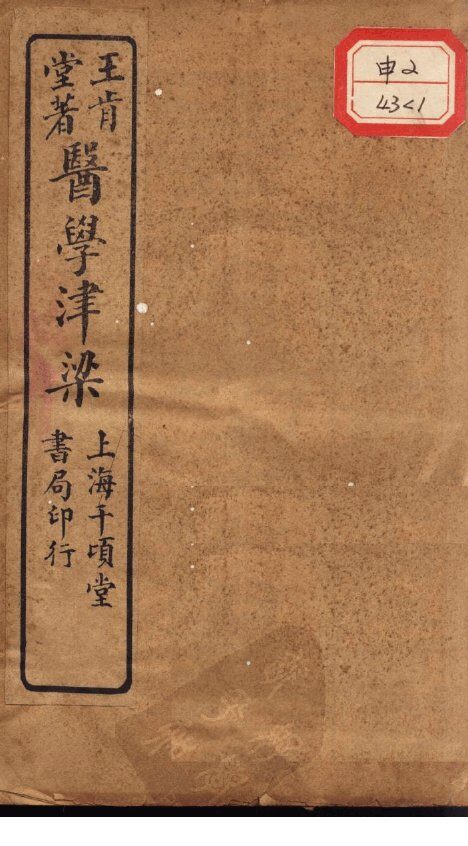 王肯堂著
醫學津梁
上海千頃堂書局印行
申2
43<1